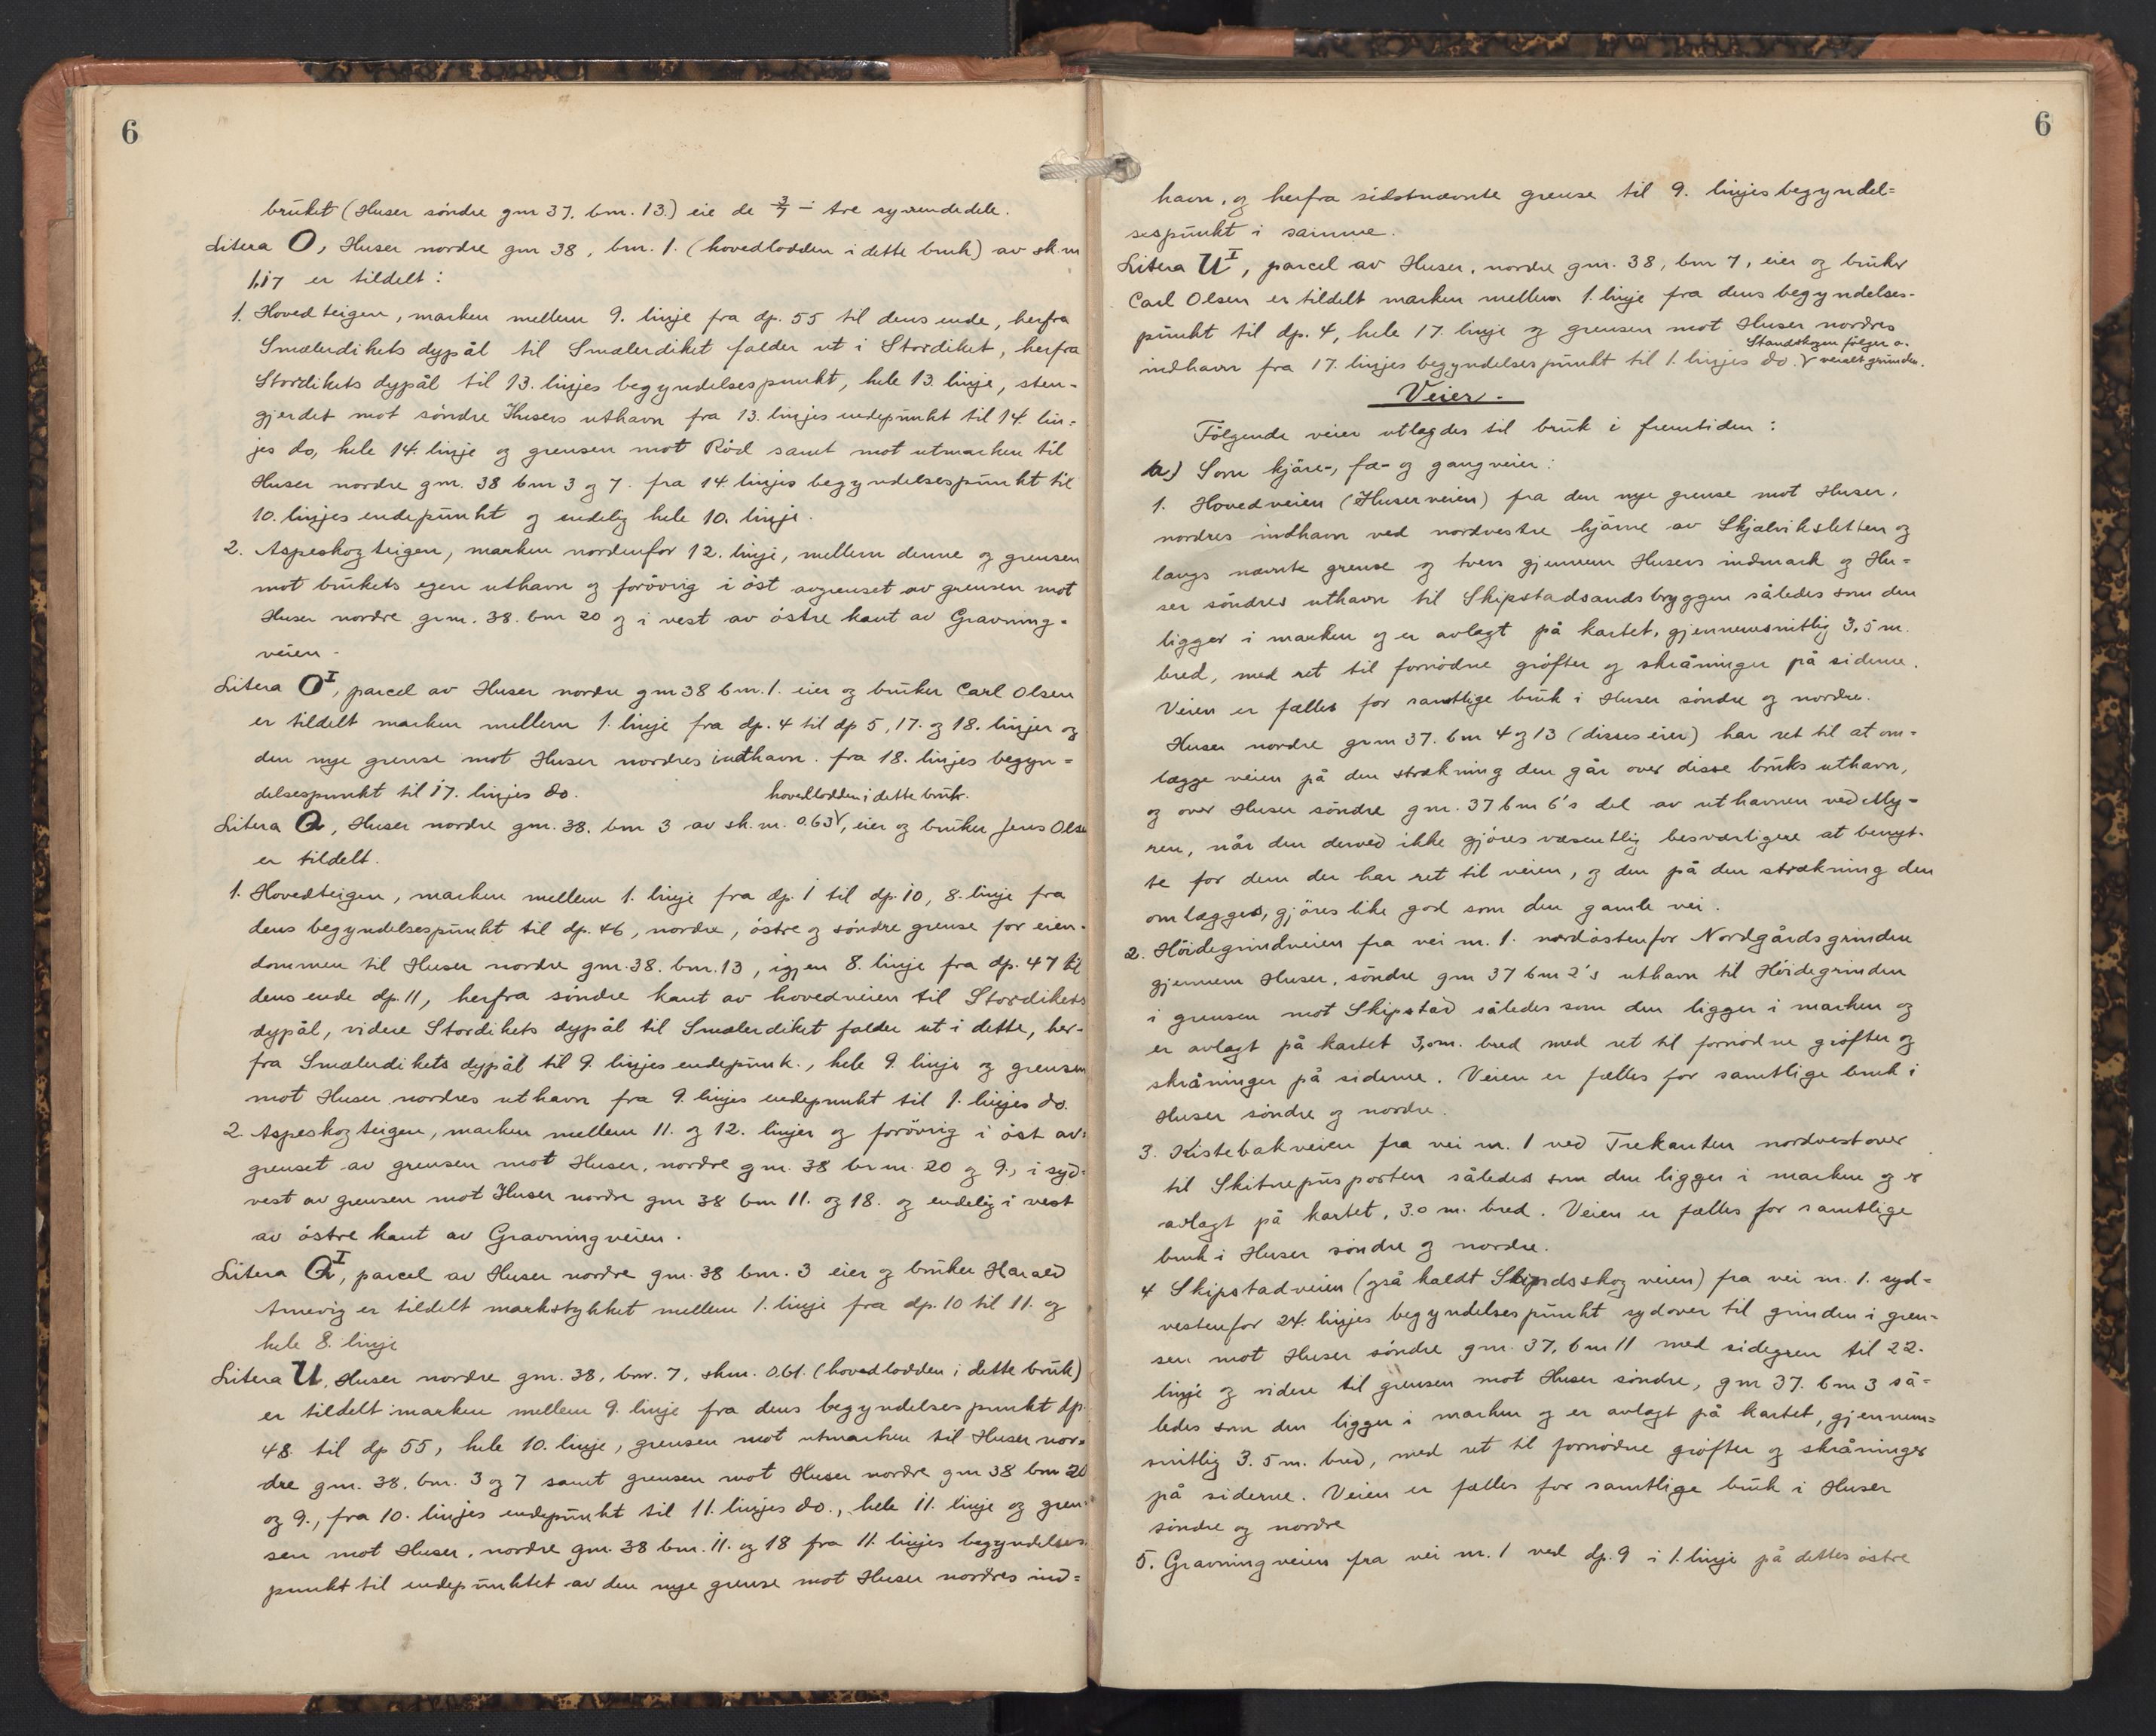 6
brüket (Huser söndre gm 37. bm. 13.) eie de 3/7 - tre syvendedele.
Litera O, Huser nordre gm 38, bm. 1. (hovedlodden i dette bruk) av sk.m
1,17 er tildelt:
1. Hovedteigen, marken mellem 9. linje fra dp. 55 til dens ende, herfra
Smælerdikets dypål til Smælerdiket falder ut i Stordiket, herfra
Stordikets dypål til 13. linjes begyndelsespunkt, hele 13. linje, sten-
gjerdet mot söndre Husers uthavn fra 13. linjes endepünkt til 14. lin=
jes do, hele 14. linje og grensen mot Röd samt mot utmarken til
Huser nordre gm. 38 bm 3 og 7. fra 14. linjes begyndelsespünkt til
10. linjes endepünkt og endelig hele 10. linje.
2. Aspeskogteigen, marken nordenfor 12. linje, mellem denne og grensen
mot brükets egen uthavn og forövrig i öst avgrenset av grensen mot
Huser nordre gnm. 38. bm 20 og i vest av östre kant av Gravning-
veien -
Litera O I, parcel av Huser nordre gm 38 bm. 1. eier og brüker Carl Olsen
er tildelt marken mellem 1. linje fra dp. 4 til dp 5, 17. og 18. linjer og
den nye grense mot Huser nordres indhavn. fra 18. linjes begyn=
delsespunkt til 17. linjes do.
hovedlodden i dette brük.
Litera Q, Huser nordre gm. 38. bm 3 av sk. m. 0.63 V, eier og brüker Jens Olse
er tildelt.
1. Hovedteigen, marken mellem 1. linje fra dp. 1 til dp. 10, 8. linje fra
dens begyndelsespünkt til dp. 46, nordre, östre og söndre grense for eien-
dommen til Huser nordre gm. 38. bm. 13, igjen 8. linje fra dp. 47 til
dens ende dp. 11, herfra söndre kant av hovedveien til Stordikets
dypål, videre Stordikets dypål til Smælerdiket falder ut i dette, her-
fra Smælerdikets dypål til 9. linjes endepünk., hele 9. linje og grensen
mot Huser nordres uthavn fra 9. linjes endepunkt til 1. linjes do.
2. Aspeskogteigen, marken mellem 11. og 12. linjer og forövrig i öst av=
grenset av grensen mot Huser, nordre gm. 38 brm. 20 og 9., i syd=
vest av grensen mot Huser nordre gm 38 bm 11. og 18. og endelig i vest
av östre kant av Gravningveien.
Litera Q I, parcel av Huser nordre gm. 38 bm. 3 eier og brüker Harald
Arnevig er tildelt markstykket mellem 1. linje fra dp. 10 til 11. og
hele 8. linje
Litera U, Huser nordre gm. 38, bm. 7, skm. 0.61. (hovedlodden i dette brük)
er tildelt marken mellem 9. linje fra dens begyndelsespunkt dp.
48 til dp 55, hele 10. linje, grensen mot utmarken til Huser nor=
dre gm. 38. bm. 3 og 7 samt grensen mot Huser nordre gm 38 bm 20
og 9., fra 10. linjes endepünkt til 11. linjes do., hele 11. linje og gren-
sen mot Huser, nordre gm. 38 bm. 11. og 18 fra 11. linjes begyndelses
punkt til endepünktet av den nye grense mot Huser nordres ind=
6
havn, og herfra sidstnævnte grense til 9. linjes begyndel=
sespünkt i samme.
Litera U I, parcel av Huser, nordre gm. 38, bm 7, eier og brüker
Carl Olsen er tildelt marken mellem 1. linje fra dens begyndelses-
pünkt til dp. 4, hele 17. linje og grensen mot Huser nordres
Standskogen fölger o.
indhavn fra 17. linjes begyndelsespünkt til 1. linjes do. V gründen.
Veier.
Fölgende veier utlægdes til brük i fremtiden:
a) Som kjöre-, fæ- og gangveier:
1. Hovedveien (Huserveien) fra den nye grense mot Huser,
nordres indhavn ved nordvestre hjörne av Skjælviksletten og
langs nævnte grense og tvers gjennem Husers indmark og Hu=
ser söndres uthavn til Skipstadsandsbryggen således som den
ligger i marken og er avlagt på kartet, gjennemsnitlig 3,5 m.
bred, med ret til fornödne gröfter og skråninger på siderne.
Veien er fælles for samtlige brük i Huser söndre og nordre.
Huser nordre gnm 37. bm 4 og 13 (disses eier) har ret til at om-
lægge veien på den strækning den går over disse brüks uthavn,
og over Huser söndre gm. 37 bm 6's del av uthavnen ved My-
ren, når den derved ikke gjöres væsentlig besværligere at benyt-
te for dem der har ret til veien, og den på den strækning den
omlægges, gjöres like god som den gamle vei.
2. Höidegrindveien fra vei nr. 1. nordöstenfor Nordgårdsgrinden
gjennem Huser, söndre gm 37 bm 2's uthavn til Höidegrinden
i grensen mot Skipstad således som den ligger i marken og
er avlagt på kartet 3,0 m. bred med ret til fornödne gröfter og
skråninger på siderne. Veien er fælles for samtlige bruk i
Huser söndre og nordre.
3. Kistebakveien fra vei nr. 1 ved Trekanten nordvestover
til Skitnepüsporten således som den ligger i marken og er
avlagt på kartet, 3.0 m. bred. Veien er fælles for samtlige
bruk i Huser söndre og nordre.
4 Skipstadveien (også kaldt Skipsdsskogveien) fra vei nr. 1. syd=
vestenfor 24. linjes begyndelsespünkt sydover til grinden i gren-
sen mot Huser söndre gm. 37, bm 11 med sidegren til 22.
linje og videre til grensen mot Huser söndre, gm 37. bm 3 så=
ledes som den ligger i marken og er avlagt på kartet, gjennem=
snitlig 3.5 m. bred, med ret til fornödne gröfter og skråninger
på siderne. Veien er fælles for samtlige brük i Huser
söndre og nordre
5. Gravningveien fra vei nr. 1 ved dp. 9 i 1. linje på dettes östre